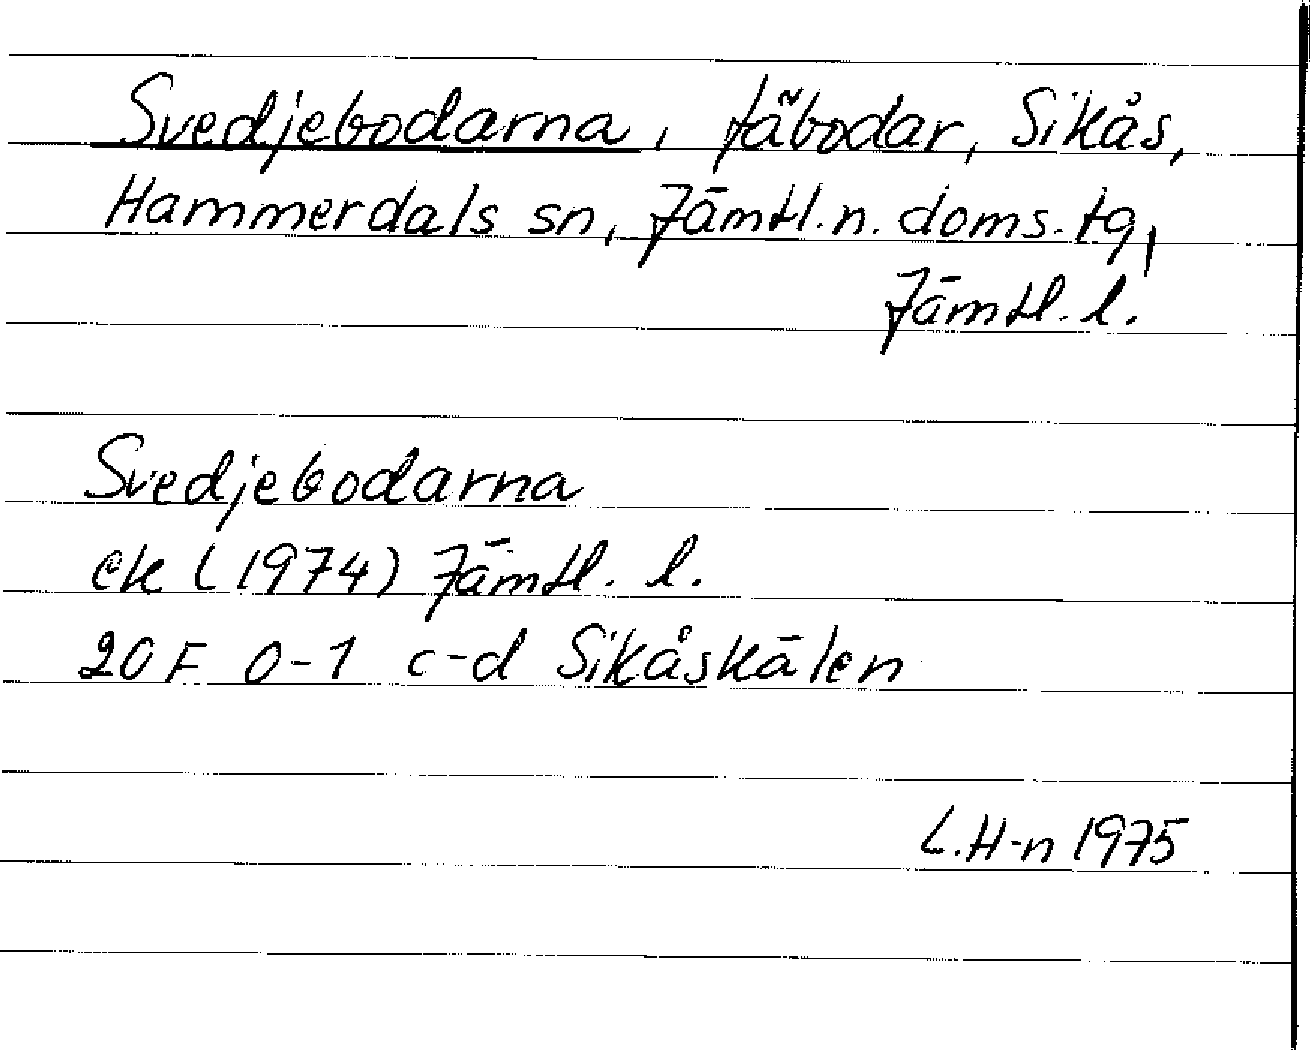 Svedjebodarna, fäbodar, Sikås,
Hammerdals sn, Jämtl. n. doms. tg,
Jämtl. l.
Svedjebodarna
ek (1974) Jämtl. l.
20 F 0-1 c-d Sikåskälen
L. H-n 1975